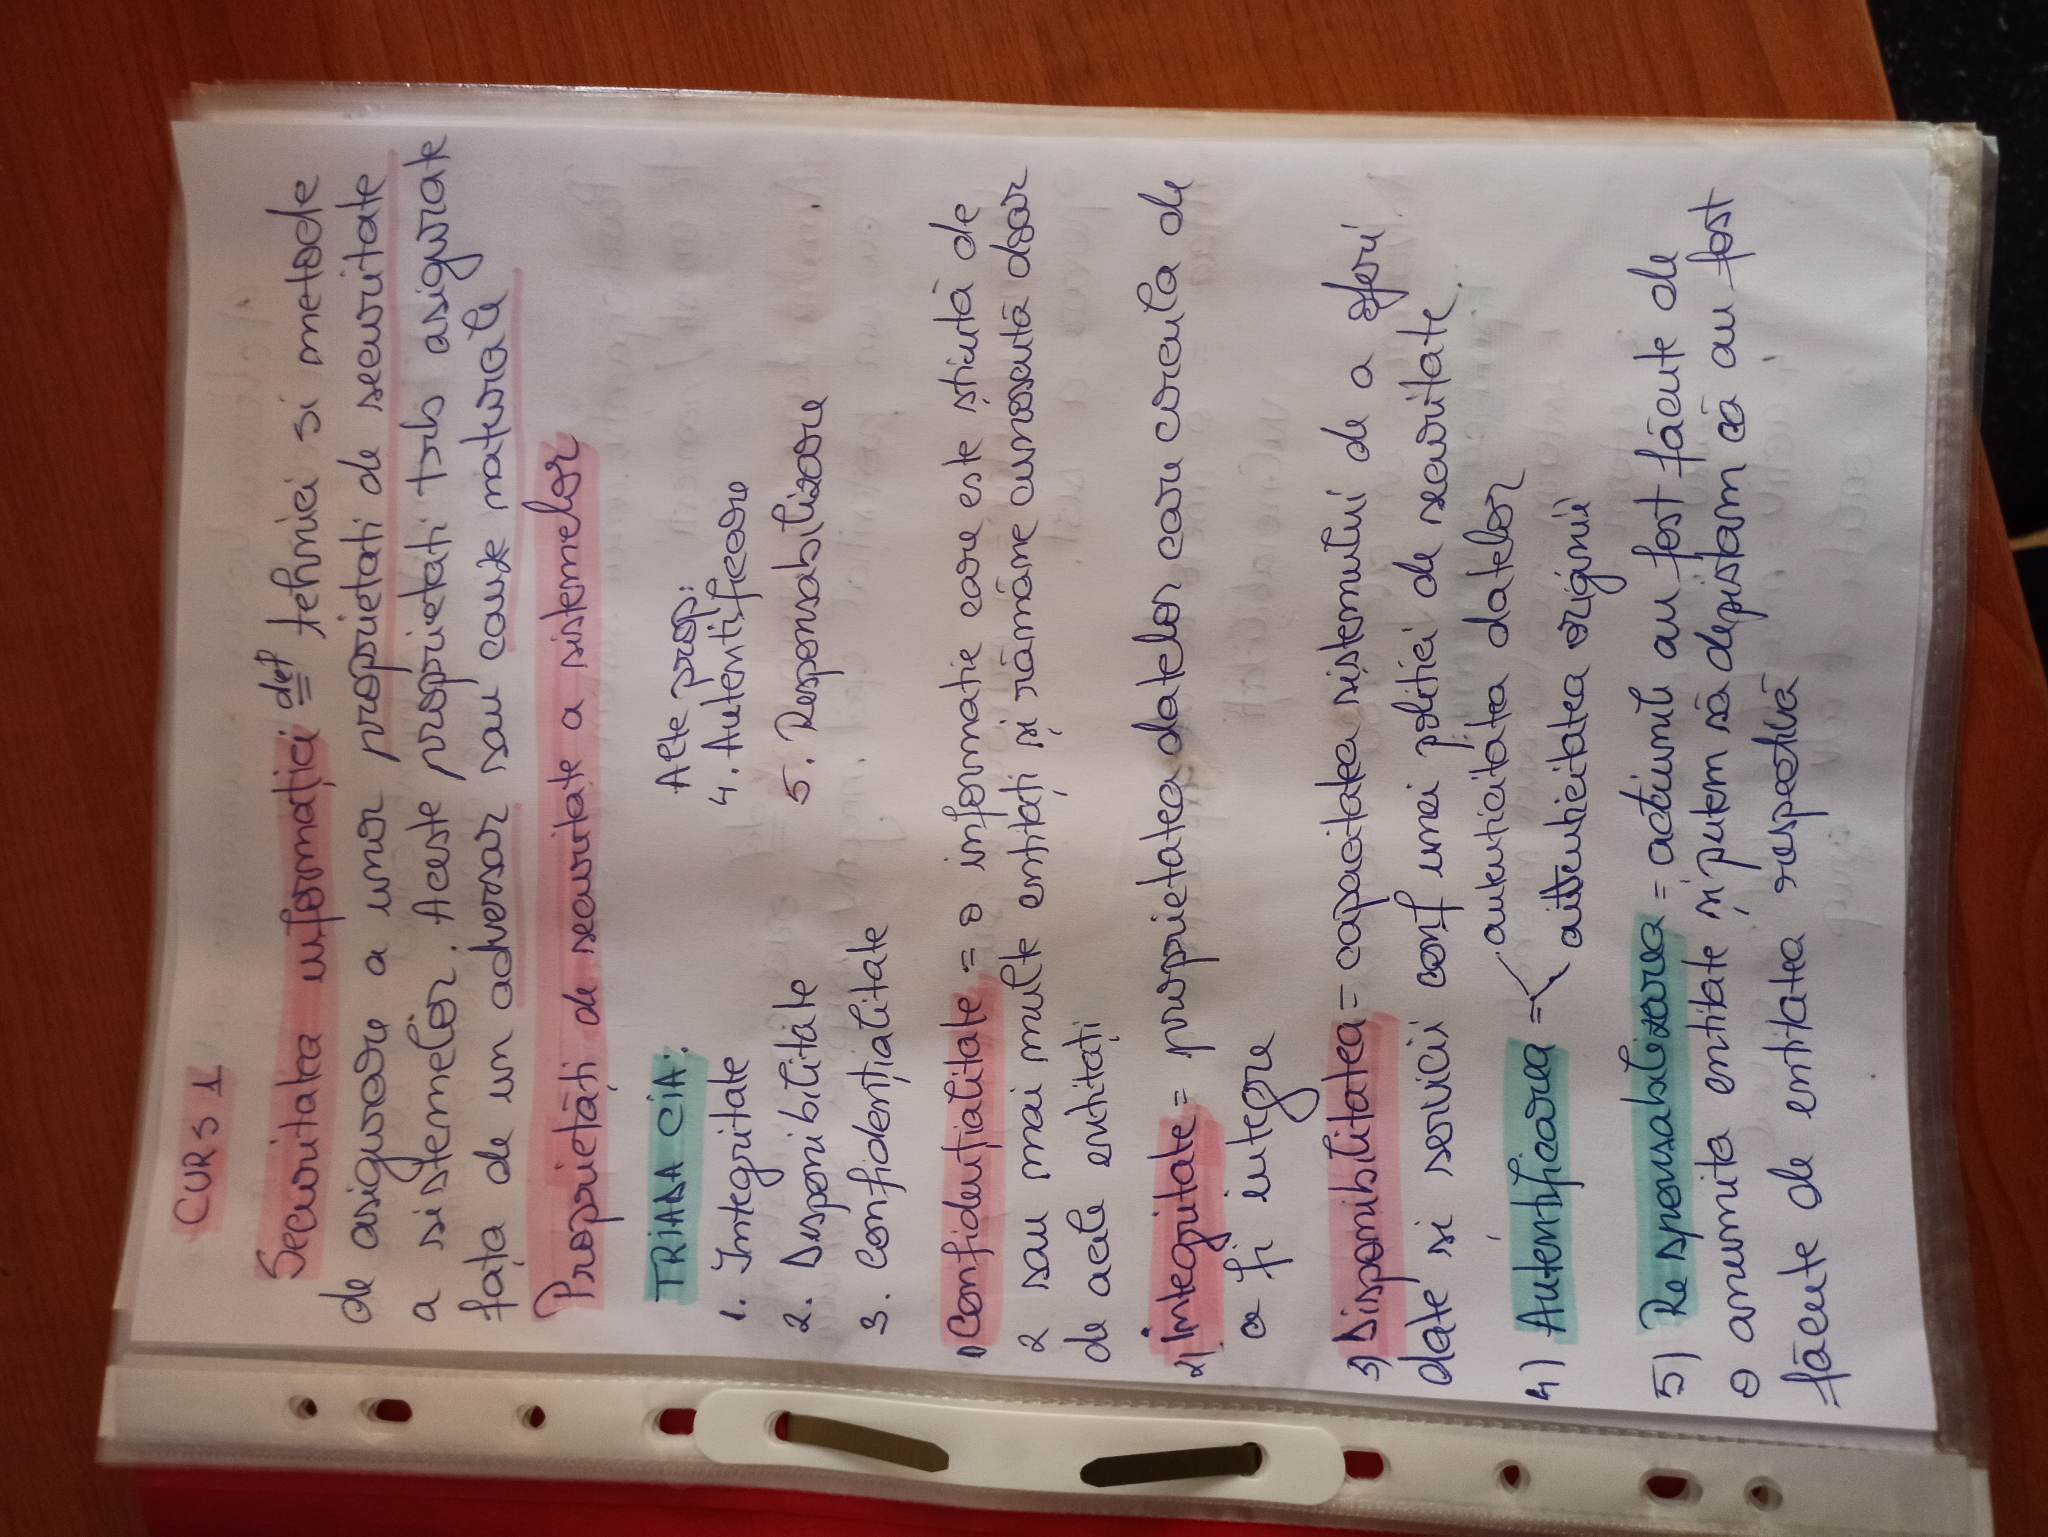 CURS 1
Securitatea informației def tehnici si metode
de asigurare a unor proprietati de securitate
a sistemelor. Aceste proprietati trb asigurate
fața de un adversar sau cauze naturale
Proprietăți de securitate a sistemelor
TRIADA CIA:
1. Integritate
2. Disponibilitate
3. Confidențialitate
Alte prop:
4. Autentificare
5. Responsabilizare
1) Confidențialitate = o informatie care este știută de
2 sau mai multe entitați și rămâne cunoscută doar
de acele entitați
2) Integritate = proprietatea datelor care corecta de
a fi integre
3) Disponibilitatea = capacitatea sistemului de a oferi
date si servicii conf unei politici de securitate.
4) Autentificarea = autenticitatea datelor
autenticitatea originii
5) Responsabilizarea = actiunile au fost făcute de
o anumita entitate și putem să depistam că au fost
făcute de entitatea respectivă